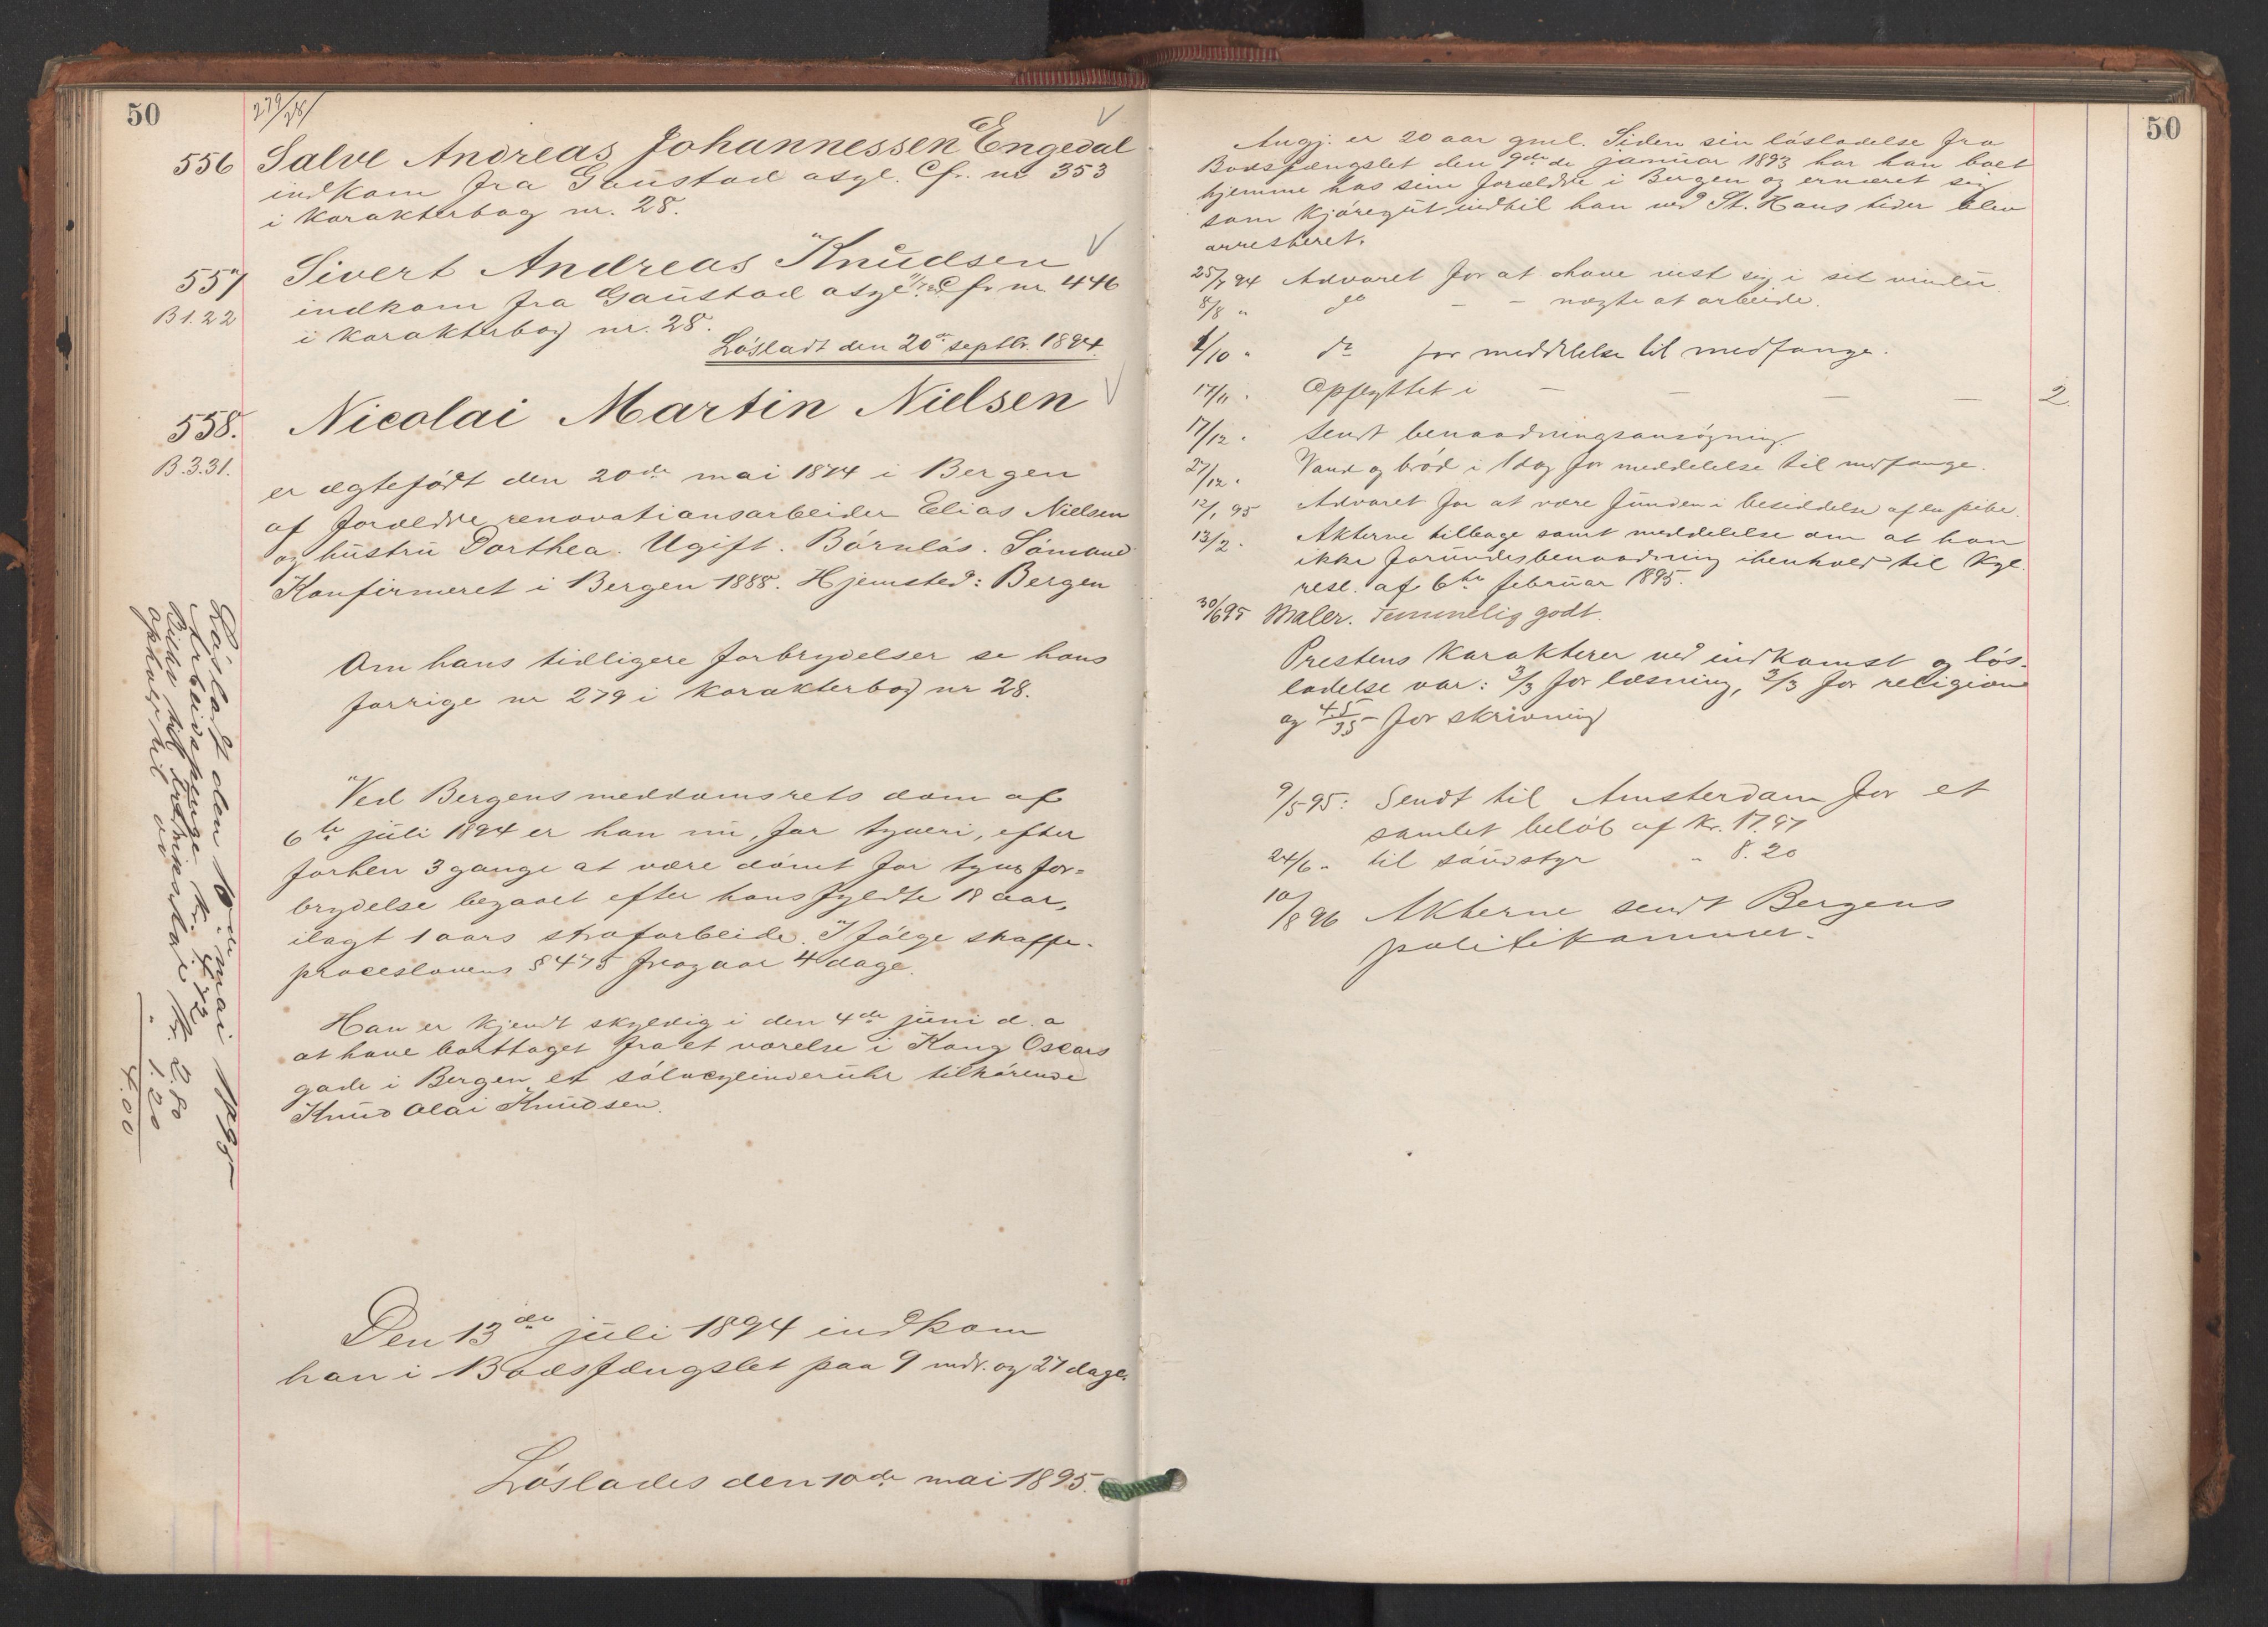 50
279/28/
556 Salve Andreas Johannessen Engedal
indkom fra Gaustad asyl. Cfr. no 353
i Karakterbog nr. 28.
557 Sivert Andreas Knudsen
B 1. 22 indkom fra Gaustad asyl Cfr nr 446
i Karakterbog nr. 28.
Løsladt den 20de septbr. 1894.
558. Nicolai Martin Nielsen
B. 3. 31.
er ægtefødt den 20de mai 1874 i Bergen
af forældre renovationsarbeider Elias Nielsen
og hustru Dorthea. Ugift. Børnløs. Sømand
Konfirmeret i Bergen 1888. Hjemsted: Bergen
Om hans tidligere forbrydelser se hans
forrige nr 279 i Karakterbog nr 28.
Ved Bergens meddomsrets dom af
6te juli 1894 er han nu, for tyveri, efter
forhen 3 gange at være dømt for tyvsfor=
brydelse begaaet efter hans fyldte 18 aar,
ilagt 1 aars strafarbeide. Ifølge straffe-
proceslovens § 475 fragaar 4 dage.
Han er kjendt skyldig i den 4de juni d. a
at have borttaget fra et værelse i Kong Oscars
gade i Bergen et sølvcylinderuhr tilhørende
Knud Olai Knudsen.
Den 13de juli 1894 indkom
han i Bodsfængslet paa 9 mdr. og 27 dage.
Løslades den 10de mai 1895.
Løsladt den 10de mai 1895
Arbeidspenge kr. 4.72
Billet til kr. 2.80
ophold til " 1.20
4.00
50
Angj. er 20 aar gml. Siden sin løsladelse fra
Bodsfængslet den 9de januar 1893 har han boet
hjemme hos sine forældre i Bergen og ernæret sig
som kjøregut indtil han ved St. Hans tider blev
arresteret.
25/7 94 Advaret for at have vist sig i sit vindu.
8/8 " do — — nægte at arbeide.
1/10 " do for meddelelse til medfange.
17/11 " Opflyttet i — — — — 2.
17/12 " Sendt benaadningsansøgning.
27/12 " Vand og brød i 1 dag for meddelelse til medfange.
12/1 95 Advaret for at være funden i besiddelse af en pibe.
13/2 " Akterne tilbage samt meddelelse om at han
ikke forundes benaadning ihenhold til Kgl.
resl. af 6te februar 1895.
30/6 95 Maler. Temmelig godt.
Prestens Karakterer ved indkomst og løs-
ladelse var: 3/3 for læsning, 3/3 for religion
og 4.5/35 for skrivning
9/5 95: Sendt til Amsterdam for et
samlet beløb af Kr. 17.97
24/6 " til " 8.20
10/8 96 Akterne sendt Bergens
politikammer.